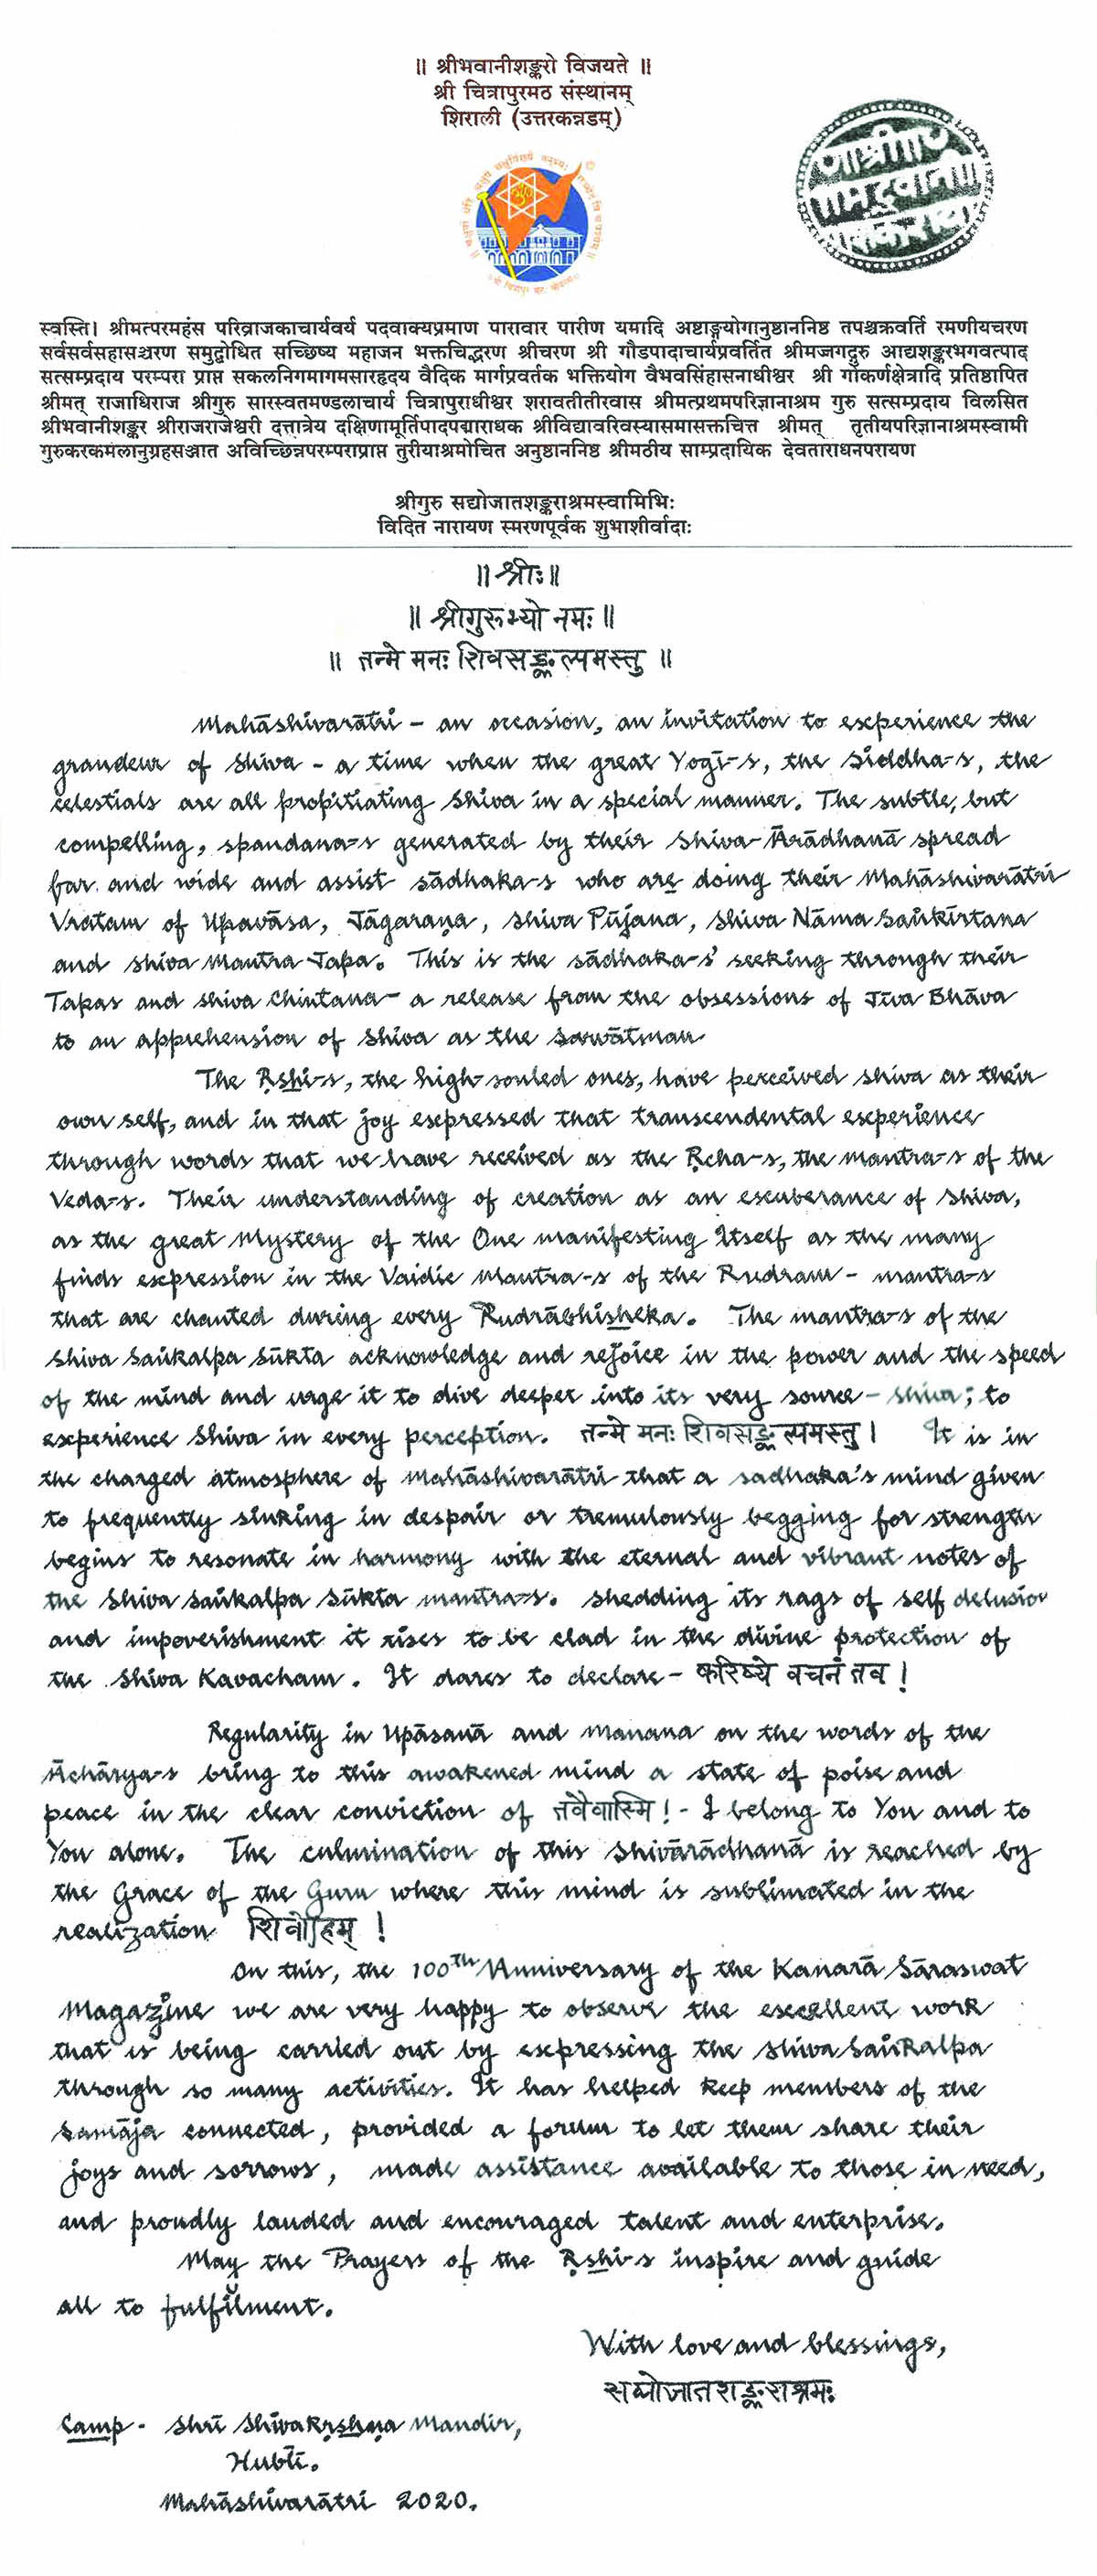 ॥ श्रीभवानीशङ्करो विजयते ॥
श्री चित्रापुरमठ संस्थानम्
शिराली (उत्तरकन्नडम्)
स्वस्ति। श्रीमत्परमहंस परिव्राजकाचार्यवर्य पदवाक्यप्रमाण पारावार पारीण यमादि अष्टाङ्गयोगानुष्ठाननिष्ठ तपश्चक्रवर्ति रमणीयचरण
सर्वसर्वसहासञ्चरण समुद्बोधित सच्छिष्य महाजन भक्तचिद्धरण श्रीचरण श्री गौडपादाचार्यप्रवर्तित श्रीमज्जगद्गुरु आद्यशङ्करभगवत्पाद
सत्सम्प्रदाय परम्परा प्राप्त सकलनिगमागमसारहृदय वैदिक मार्गप्रवर्तक भक्तियोग वैभवसिंहासनाधीश्वर श्री गोकर्णक्षेत्रादि प्रतिष्ठापित
श्रीमत् राजाधिराज श्रीगुरु सारस्वतमण्डलाचार्य चित्रापुराधीश्वर शरावतीतीरवास श्रीमत्प्रथमपरिज्ञानाश्रम गुरु सत्सम्प्रदाय विलसित
श्रीभवानीशङ्कर श्रीराजराजेश्वरी दत्तात्रेय दक्षिणामूर्तिपादपद्माराधक श्रीविद्यावरिवस्यासमासक्तचित्त श्रीमत् तृतीयपरिज्ञानाश्रमस्वामी
गुरुकरकमलानुग्रहसञ्जात अविच्छिन्नपरम्पराप्राप्त तुरीयाश्रमोचित अनुष्ठाननिष्ठ श्रीमठीय साम्प्रदायिक देवताराधनपरायण
श्रीगुरु सद्योजातशङ्कराश्रमस्वामिभिः
विदित नारायण स्मरणपूर्वक शुभाशीर्वादाः
॥ श्रीः ॥
॥ श्रीगुरुभ्यो नमः ॥
॥ तन्मे मनः शिवसङ्कल्पमस्तु ॥
Mahāshivarātri - an occasion, an invitation to experience the
grandeur of Shiva - a time when the great Yogī-s, the Siddha-s, the
celestials are all propitiating Shiva in a special manner. The subtle, but
compelling, spandana-s generated by their Shiva-Ārādhanā spread
far and wide and assist sādhaka-s who are doing their Mahāshivarātri
Vratam of Upavāsa, Jāgaraṇa, Shiva Pūjana, Shiva Nāma Saṅkīrtana
and Shiva Mantra Japa. This is the sādhaka-s' seeking through their
Tapas and Shiva Chintana - a release from the obsessions of Jīva Bhāva
to an apprehension of Shiva as the Sarvātman.
The Ṛshi-s, the high-souled ones, have perceived Shiva as their
own self, and in that joy expressed that transcendental experience
through words that we have received as the Ṛcha-s, the mantra-s of the
Veda-s. Their understanding of creation as an exuberance of Shiva,
as the great Mystery of the One manifesting Itself as the many
finds expression in the Vaidic Mantra-s of the Rudram - mantra-s
that are chanted during every Rudrābhisheka. The mantra-s of the
Shiva Saṅkalpa Sūkta acknowledge and rejoice in the power and the speed
of the mind and urge it to dive deeper into its very source - Shiva; to
experience Shiva in every perception. तन्मे मनः शिवसङ्कल्पमस्तु। It is in
the charged atmosphere of Mahāshivarātri that a sadhaka's mind given
to frequently sinking in despair or tremulously begging for strength
begins to resonate in harmony with the eternal and vibrant notes of
the Shiva Saṅkalpa Sūkta mantra-s. Shedding its rags of self delusion
and impoverishment it rises to be clad in the divine protection of
the Shiva Kavacham. It dares to declare - करिष्ये वचनं तव !
Regularity in Upāsanā and Manana on the words of the
Āchārya-s bring to this awakened mind a state of poise and
peace in the clear conviction of तवैवास्मि ! - I belong to You and to
You alone. The culmination of this Shivārādhanā is reached by
the Grace of the Guru where this mind is sublimated in the
realization शिवोहम् !
On this, the 100th Anniversary of the Kanarā Sāraswat
Magazine we are very happy to observe the excellent work
that is being carried out by expressing the Shiva Saṅkalpa
through so many activities. It has helped keep members of the
Samāja connected, provided a forum to let them share their
joys and sorrows, made assistance available to those in need,
and proudly lauded and encouraged talent and enterprise.
May the Prayers of the Ṛshi-s inspire and guide
all to fulfilment.
With love and blessings,
सद्योजातशङ्कराश्रमः
Camp - Shrī Shivakṛshṇa Mandir,
Hublī.
Mahāshivarātri 2020.